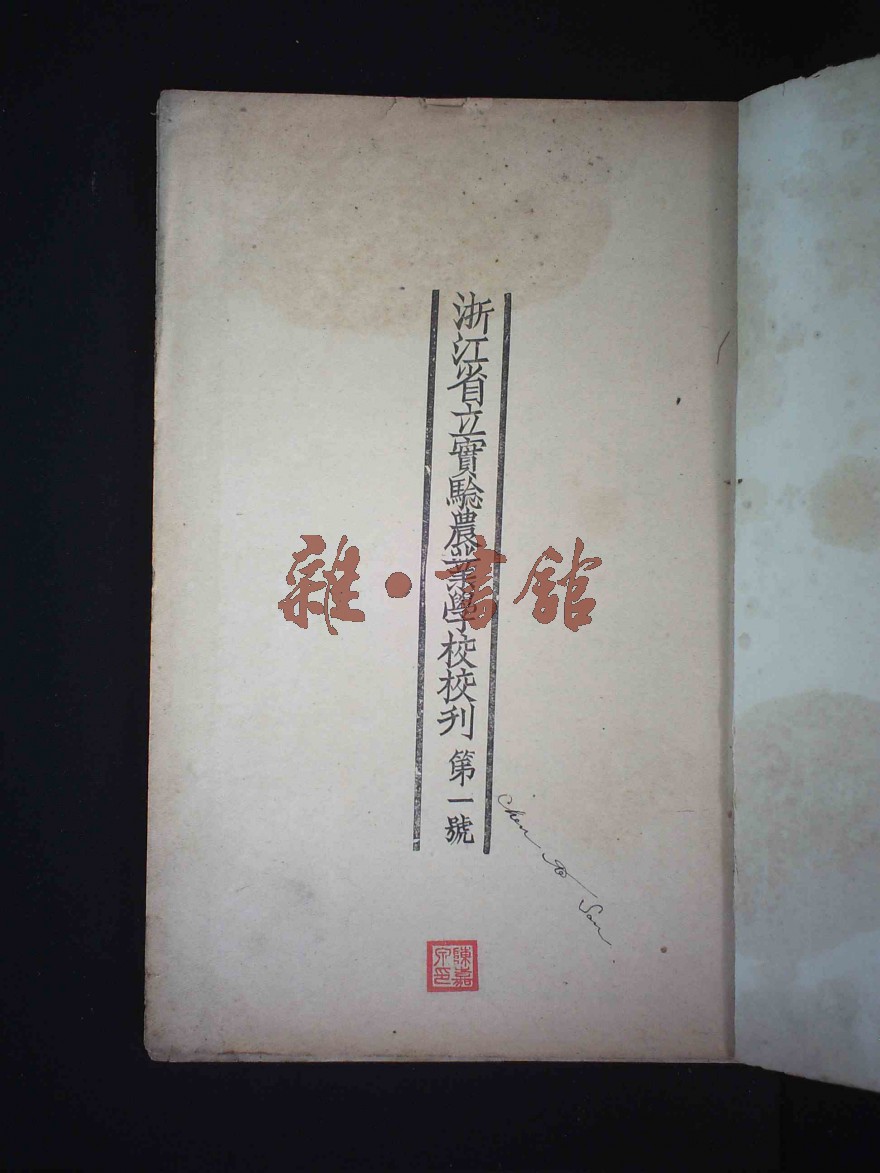 浙江省立實驗農業學校校刊 第一號
雜·書館
Chen
San
陳嘉